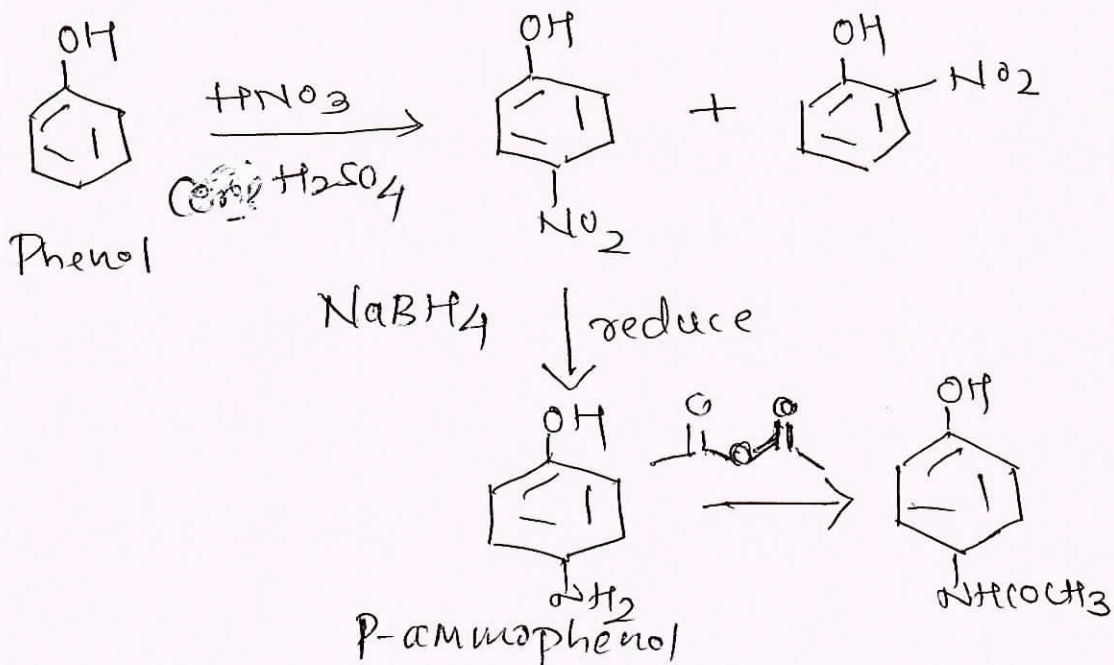 OH
HNO3
H2SO4
Phenol
OH
NO2
+
OH
NO2
NaBH4
reduce
OH
NH2
P-ammophenol
O
O
O
OH
NHCOCH3